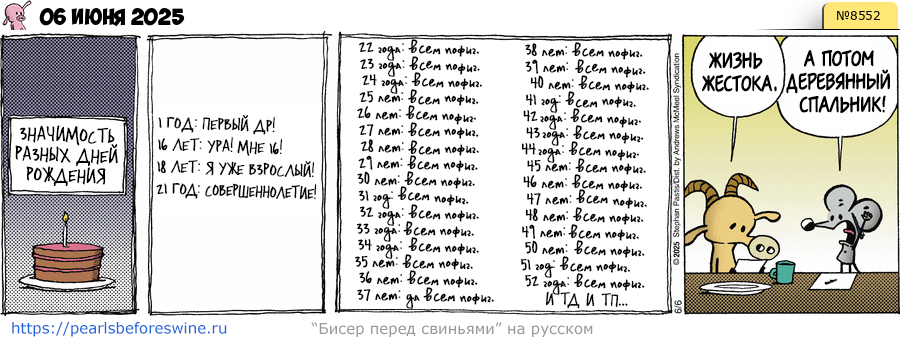 06 ИЮНЯ 2025
№8552
ЗНАЧИМОСТЬ
РАЗНЫХ ДНЕЙ
РОЖДЕНИЯ
1 ГОД: ПЕРВЫЙ ДР!
16 ЛЕТ: УРА! МНЕ 16!
18 ЛЕТ: Я УЖЕ ВЗРОСЛЫЙ!
21 ГОД: СОВЕРШЕННОЛЕТИЕ!
22 года: всем пофиг.
23 года: всем пофиг.
24 года: всем пофиг.
25 лет: всем пофиг.
26 лет: всем пофиг.
27 лет: всем пофиг.
28 лет: всем пофиг.
29 лет: всем пофиг.
30 лет: всем пофиг.
31 год: всем пофиг.
32 года: всем пофиг.
33 года: всем пофиг.
34 года: всем пофиг.
35 лет: всем пофиг.
36 лет: всем пофиг.
37 лет: да всем пофиг.
38 лет: всем пофиг.
39 лет: всем пофиг.
40 лет: всем пофиг.
41 год: всем пофиг.
42 года: всем пофиг.
43 года: всем пофиг.
44 года: всем пофиг.
45 лет: всем пофиг.
46 лет: всем пофиг.
47 лет: всем пофиг.
48 лет: всем пофиг.
49 лет: всем пофиг.
50 лет: всем пофиг.
51 год: всем пофиг.
52 года: всем пофиг.
И ТД И ТП...
©2025 Stephan Pastis/Dist. by Andrews McMeel Syndication
6/6
ЖИЗНЬ
ЖЕСТОКА.
А ПОТОМ
ДЕРЕВЯННЫЙ
СПАЛЬНИК!
https://pearlsbeforeswine.ru
“Бисер перед свиньями” на русском